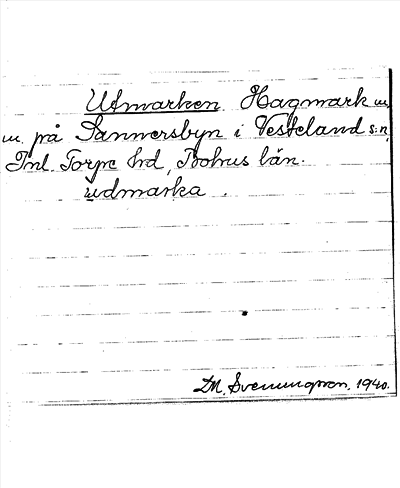 Utmarken Hagmark m.
m. på Sannersbyn i Vesteland s:n
Inl. Torpe hrd, Bohus län.
udmarka.
D.M. Svenungsson. 1940.